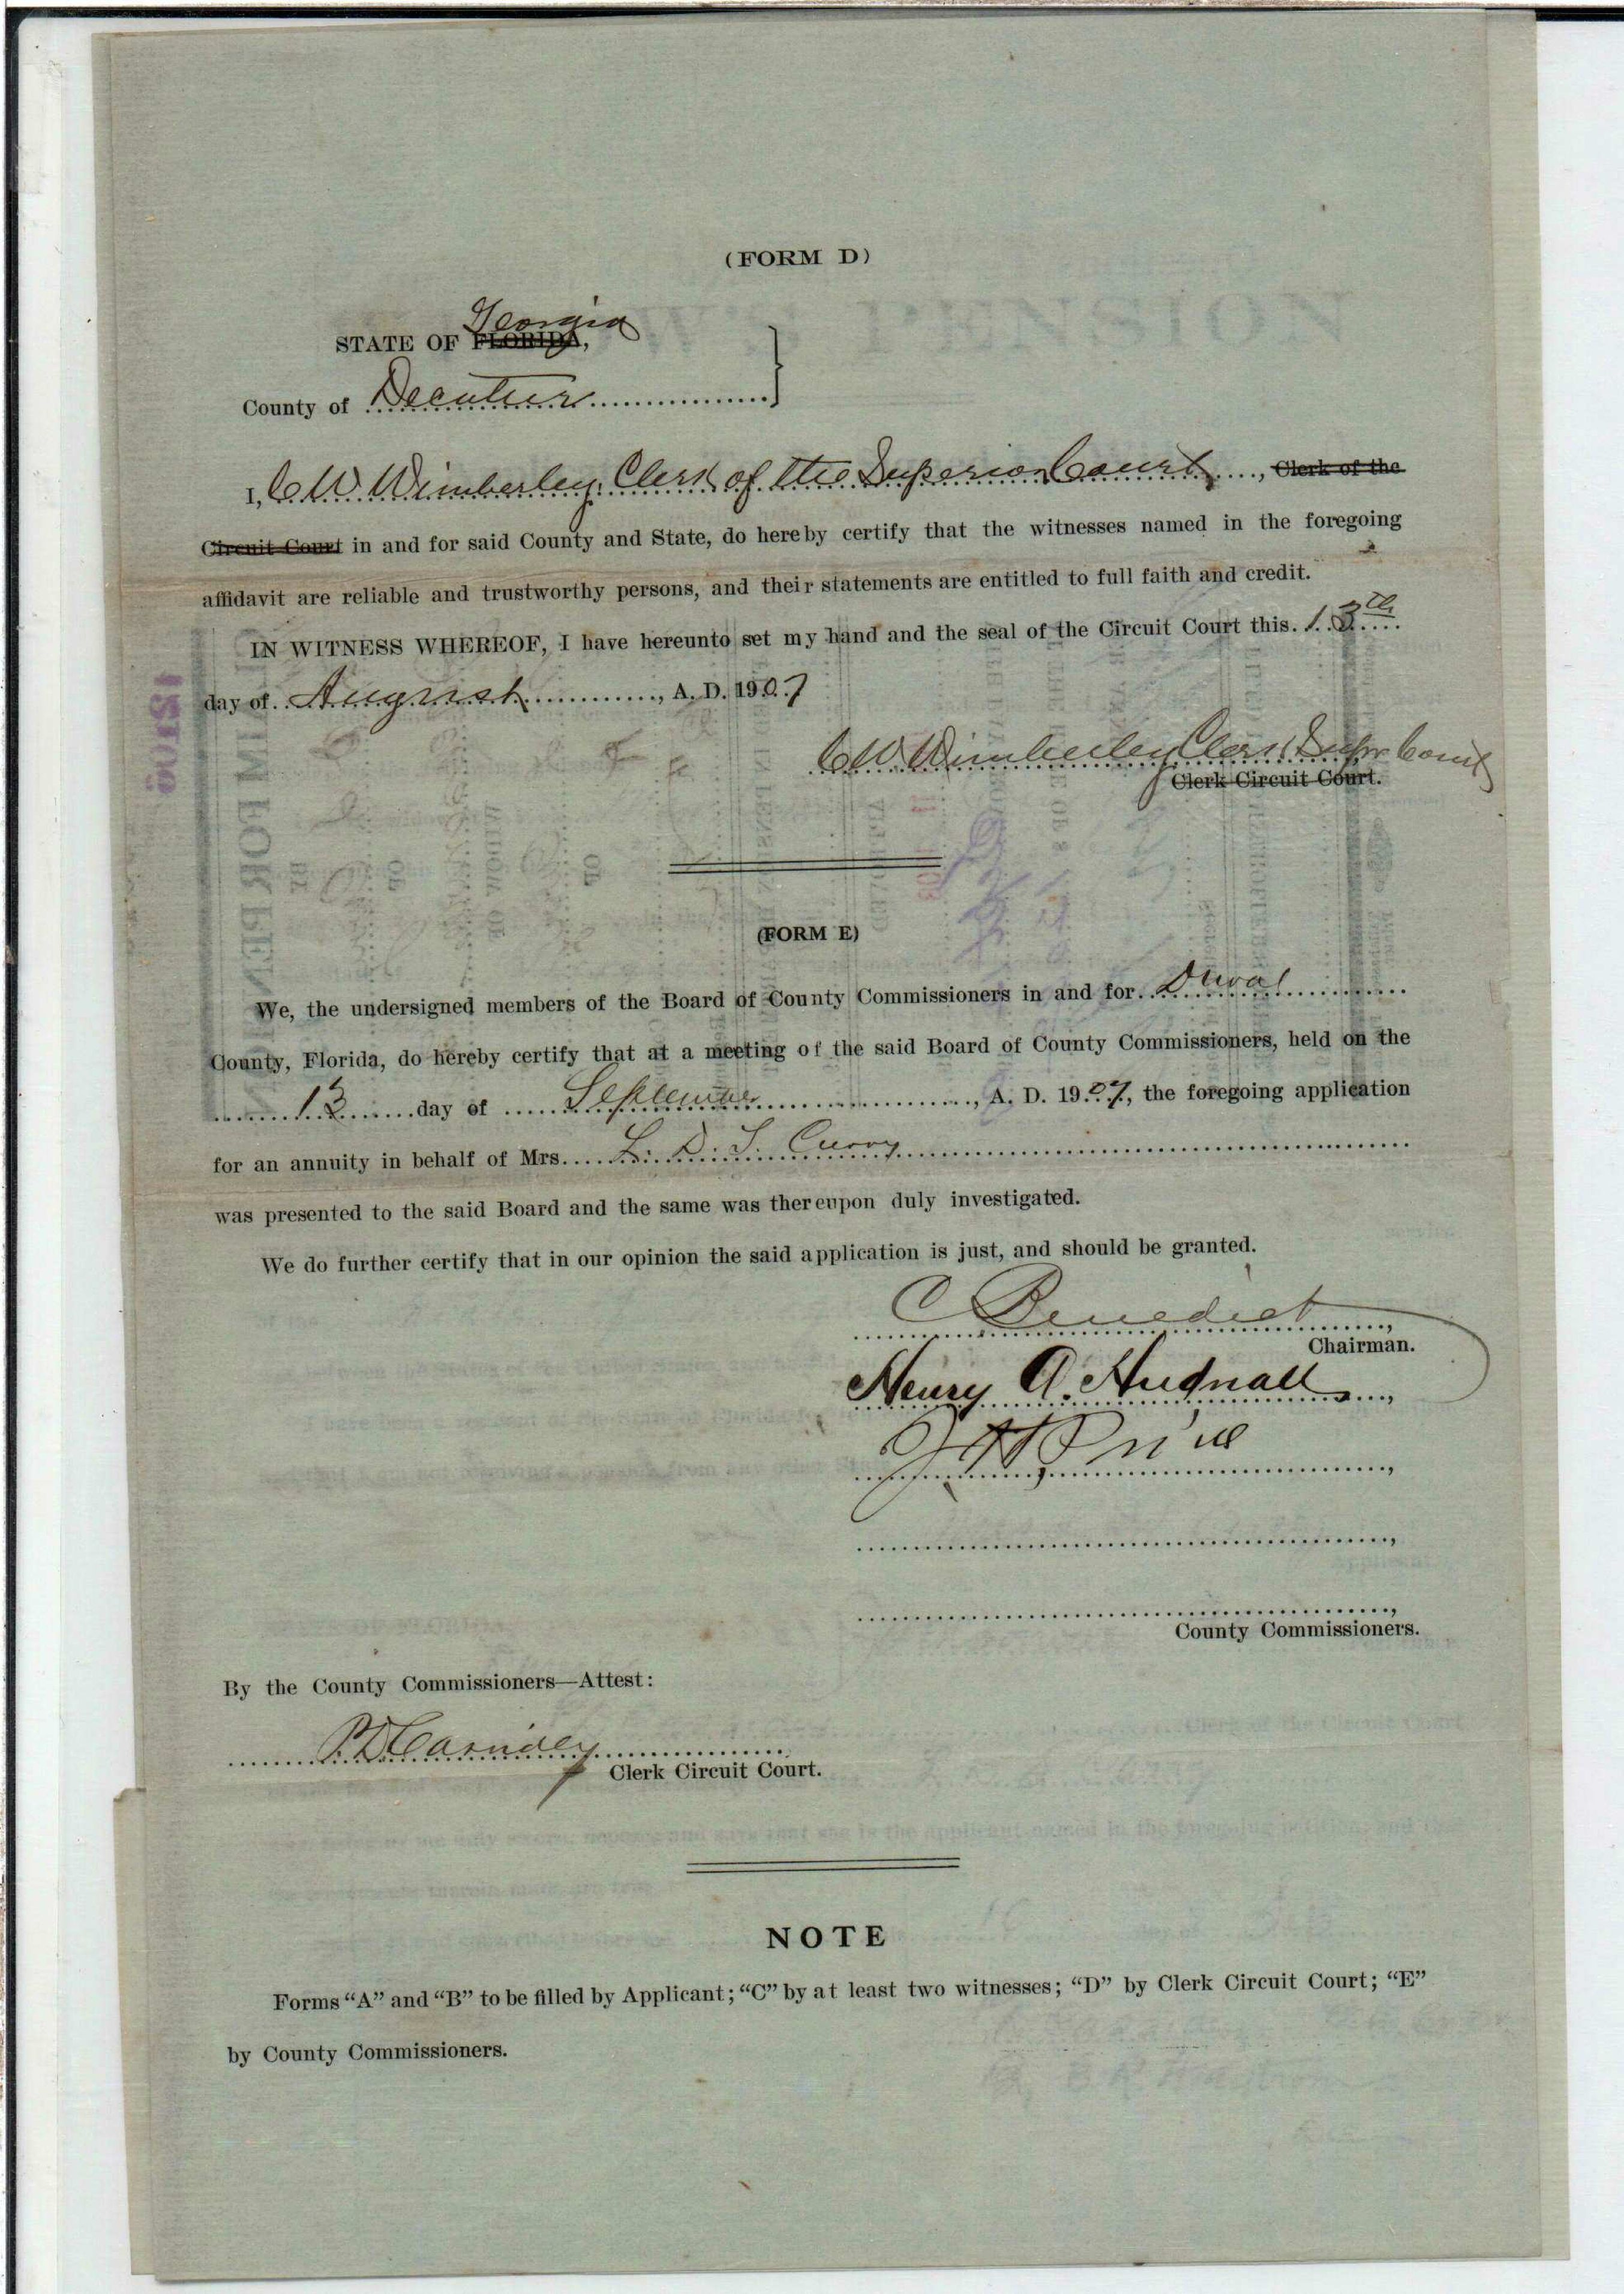 (FORM D)
Georgia
STATE OF FLORIDA,
County of Decatur
I, C W Wimberley Clerk of the Superior Court, Clerk of the
Circuit Court in and for said County and State, do hereby certify that the witnesses named in the foregoing
affidavit are reliable and trustworthy persons, and their statements are entitled to full faith and credit.
IN WITNESS WHEREOF, I have hereunto set my hand and the seal of the Circuit Court this 13th
day of August, A. D. 1907
C W Wimberley Clerk Supr Court
Clerk Circuit Court.
(FORM E)
We, the undersigned members of the Board of County Commissioners in and for Duval
County, Florida, do hereby certify that at a meeting of the said Board of County Commissioners, held on the
13 day of September, A. D. 1907, the foregoing application
for an annuity in behalf of Mrs. L. D. T. Curry
was presented to the said Board and the same was thereupon duly investigated.
We do further certify that in our opinion the said application is just, and should be granted.
C Benedict,
Chairman.
Henry A. Hudnall,
J H Price,
County Commissioners.
By the County Commissioners—Attest:
P D Cassidey
Clerk Circuit Court.
NOTE
Forms "A" and "B" to be filled by Applicant; "C" by at least two witnesses; "D" by Clerk Circuit Court; "E"
by County Commissioners.